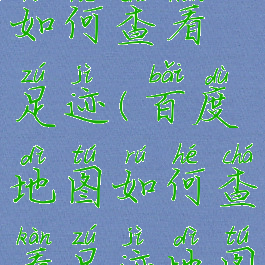 如何查看
zú jì bǎi dù
足迹(百度
dì tú rú hé chá
地图如何查
kàn zú jì dì tú
看足迹地图